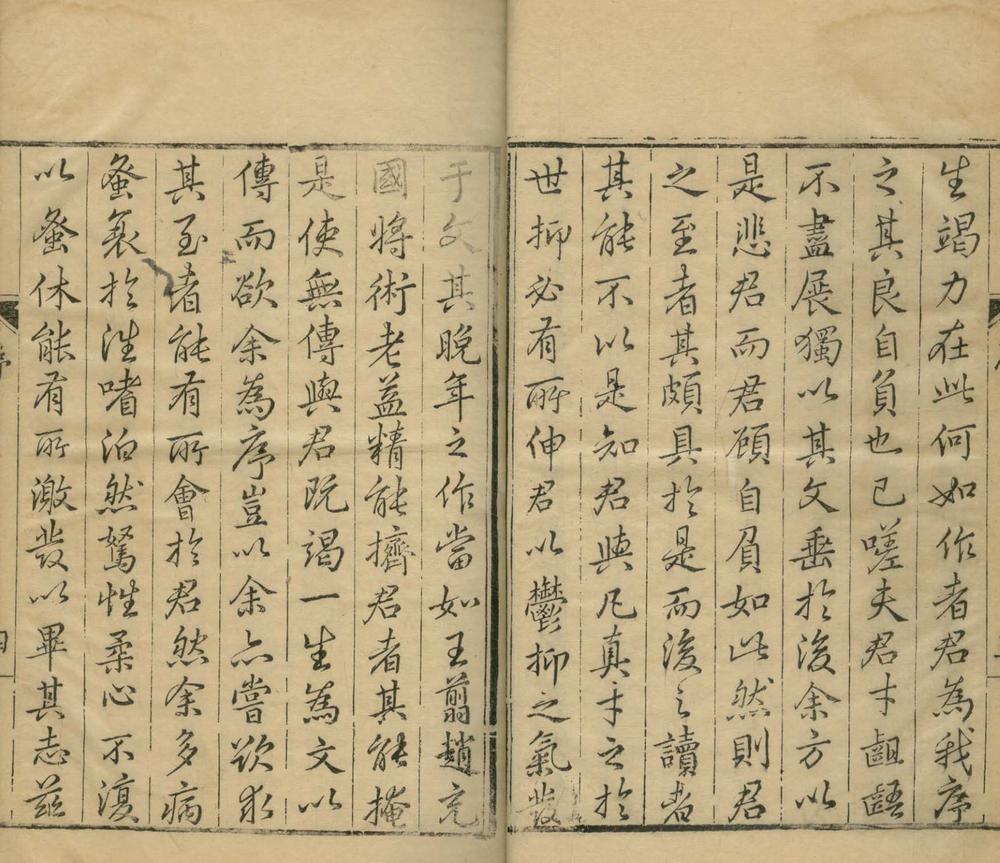 生竭力在此何如作者君為我序
之其良自負也已嗟夫君才齟齬
不盡展獨以其文垂於後余方以
是悲君而君顧自負如此然則君
之至者其頗具於是而後之讀者
其能不以是知君與凡真才之於
世抑必有所伸君以鬱抑之氣發
于文其晚年之作當如王翦趙充
國將術老益精能擠君者其能掩
是使無傳與君既竭一生為文以
傳而欲余為序豈以余亦嘗欲求
其至者能有所會於君然余多病
蚤衰於性嗜泊然駑性柔心不復
以蚤休能有所激發以畢其志茲